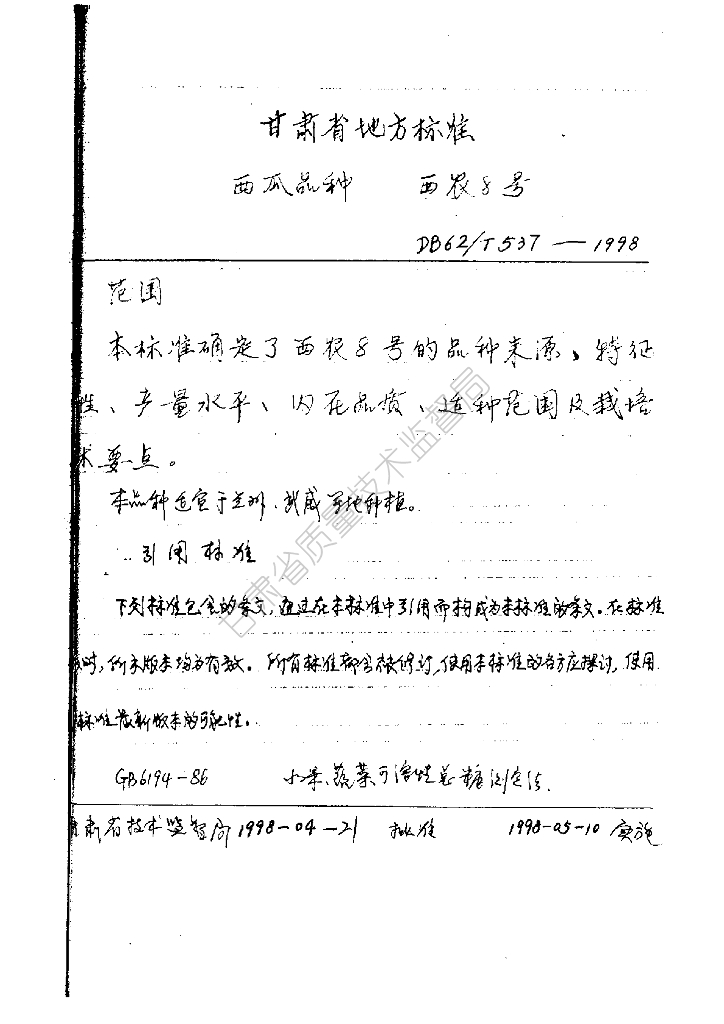 甘肃省地方标准
西瓜品种 西农8号
DB62/T537—1998
范围
本标准确定了西农8号的品种来源、特征
性、产量水平、内在品质、适种范围及栽培
术要点。
本品种适宜于兰州、武威等地种植。
引用标准
下列标准包含的条文,通过在本标准中引用而构成为本标准的条文。在标准
时,所示版本均为有效。所有标准都会被修订,使用本标准的各方应探讨,使用
标准最新版本的可能性。
GB6194-86 水果、蔬菜可溶性总糖测定法.
肃省技术监督局1998-04-21 批准 1998-05-10 实施
甘肃省质量技术监督局